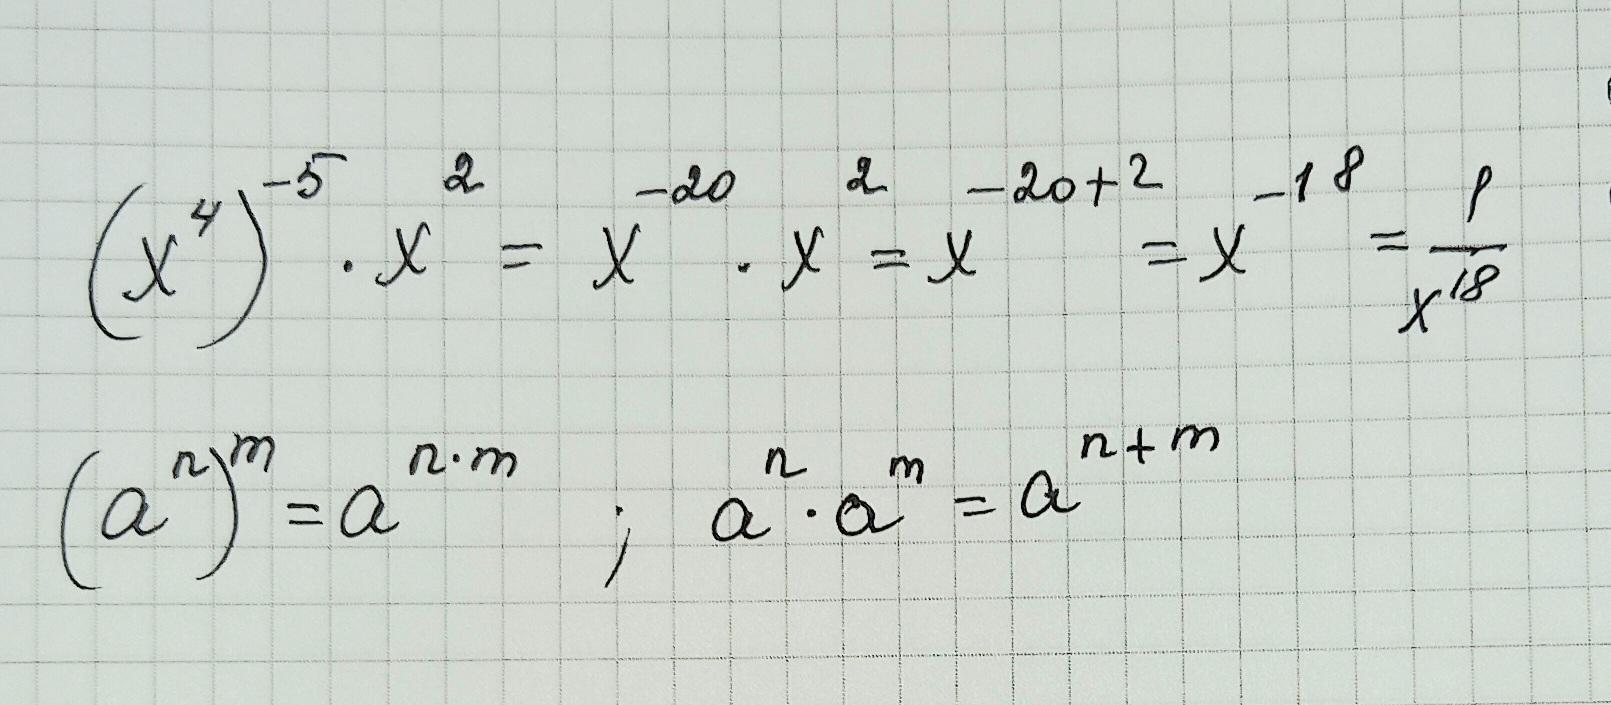 (x⁴)⁻⁵ · x² = x⁻²⁰ · x² = x⁻²⁰⁺² = x⁻¹⁸ = 1/x¹⁸
(aⁿ)ᵐ = aⁿ·ᵐ ; aⁿ · aᵐ = aⁿ⁺ᵐ